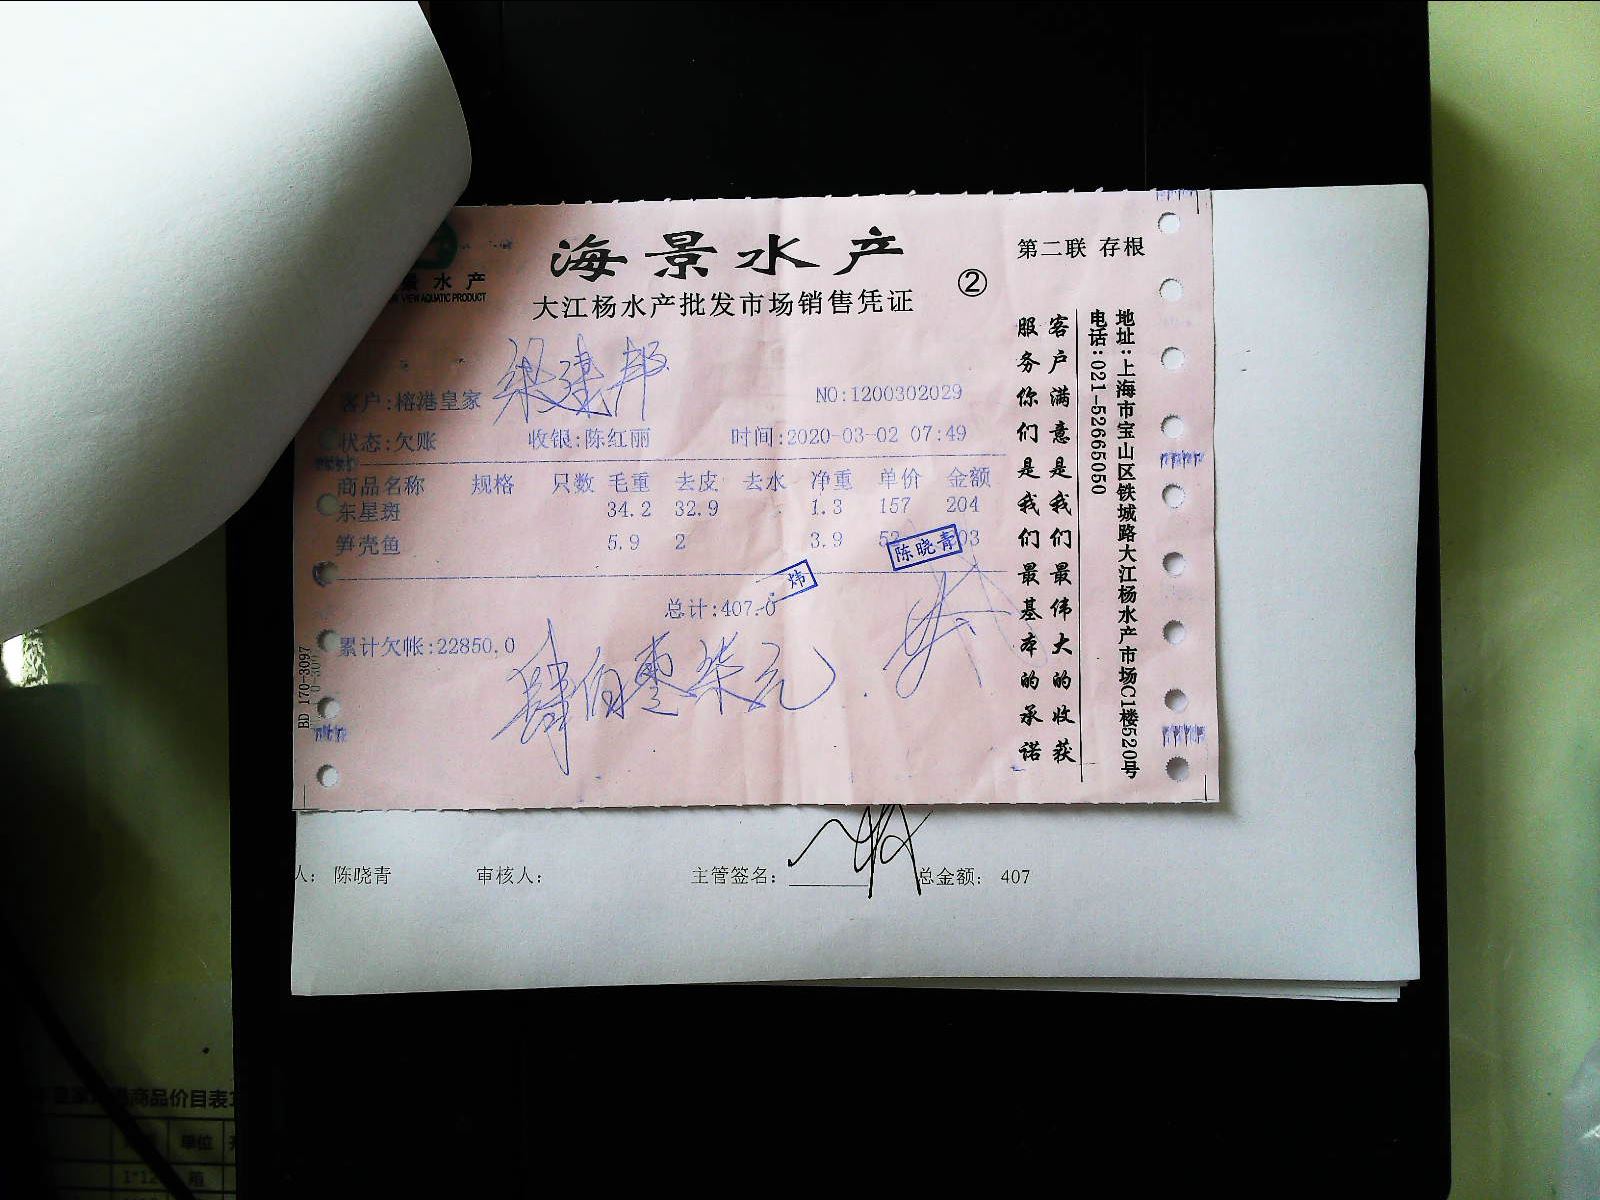 海景水产
大江杨水产批发市场销售凭证
②
第二联 存根
景水产
VIEW AQUATIC PRODUCT
梁建邦
客户:榕港皇家
NO:1200302029
状态:欠账 收银:陈红丽 时间:2020-03-02 07:49
商品名称 规格 只数 毛重 去皮 去水 净重 单价 金额
东星斑 34.2 32.9 1.3 157 204
笋壳鱼 5.9 2 3.9 52 03
陈晓青
炜
总计:407.0
累计欠帐:22850.0
肆佰零柒元
客户满意是我们最伟大的收获
服务你们是我们最基本的承诺
地址:上海市宝山区铁城路大江杨水产市场C1楼520号
电话:021-52665050
BD 170-3097
人: 陈晓青 审核人: 主管签名: 总金额: 407
商品价目表
单位
1*12 箱